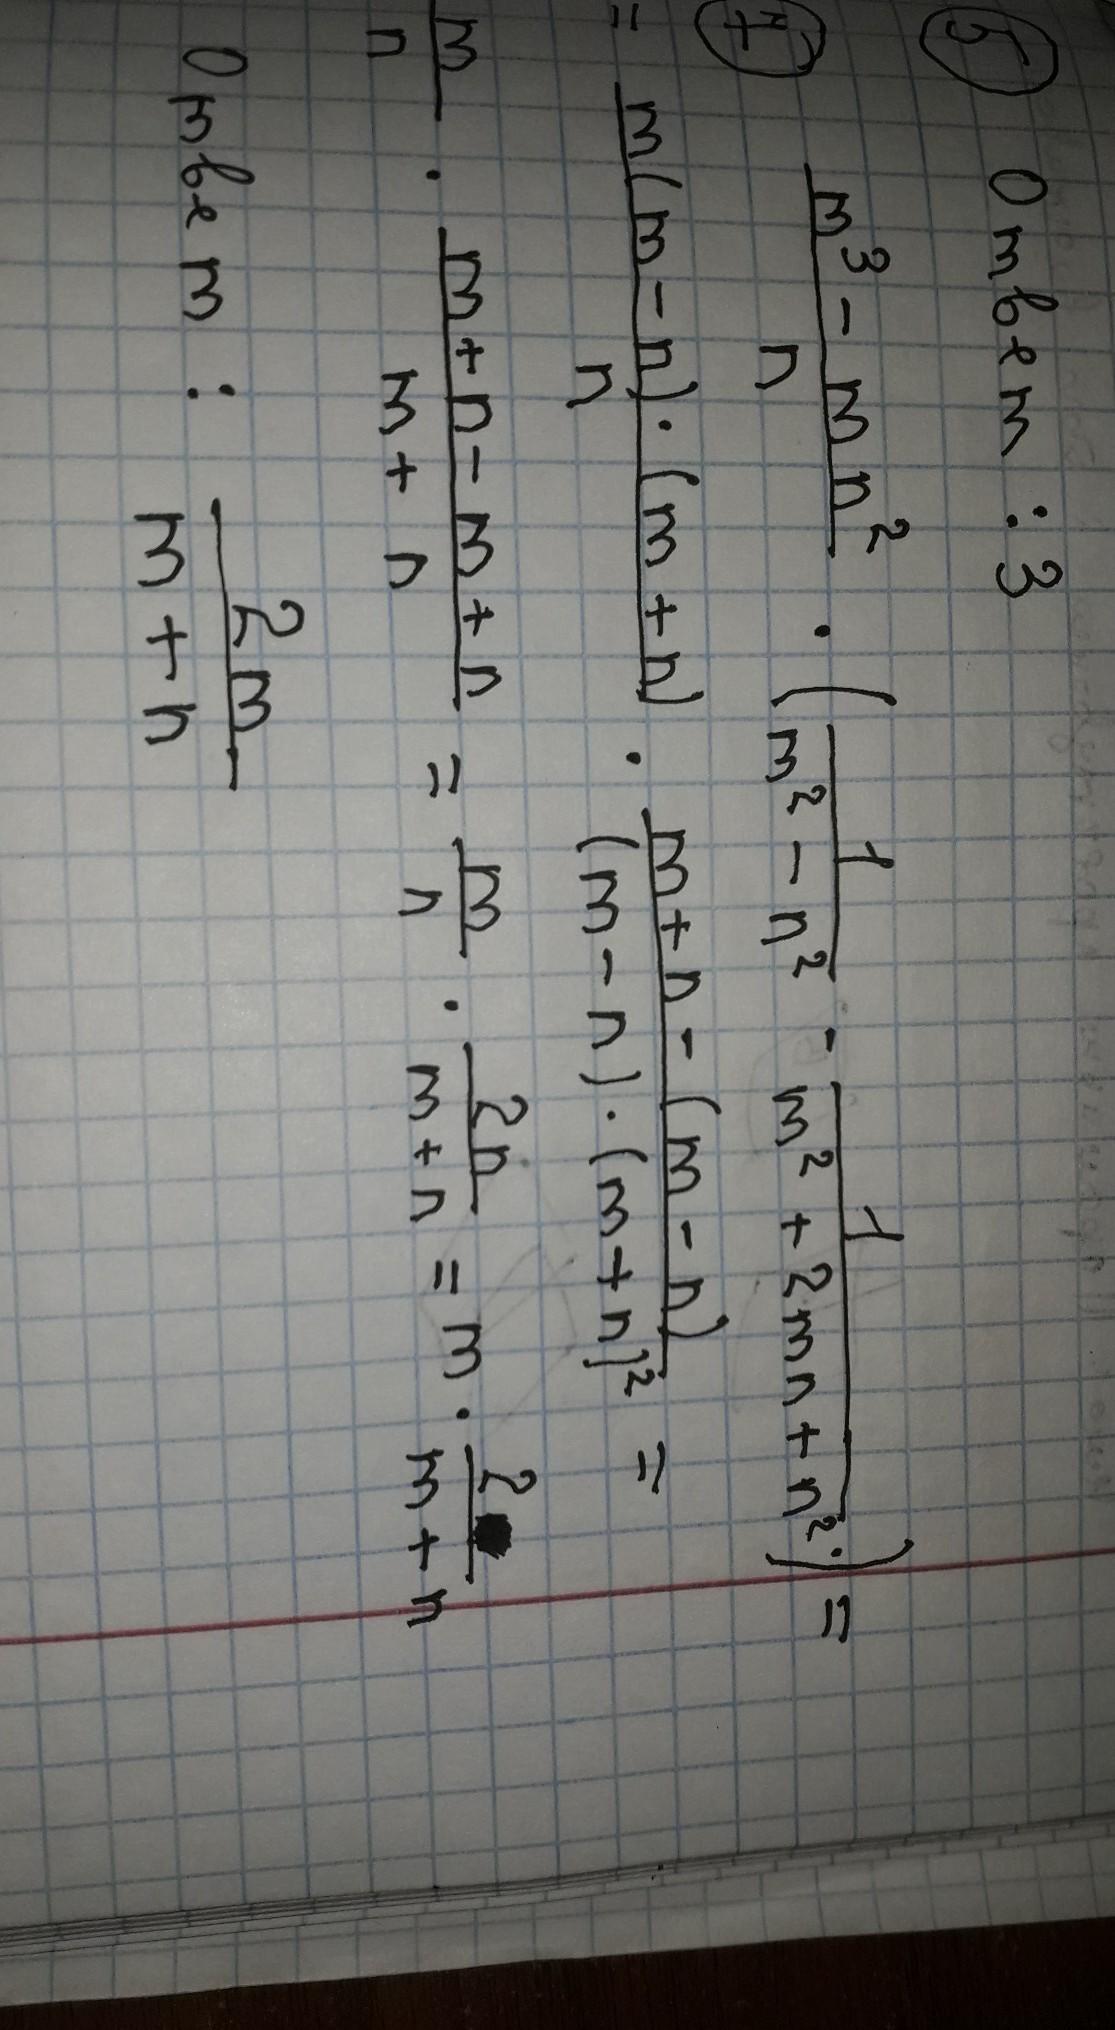 ⑤ Ответ : 3
④ (m³ - mn²)/n · (1/(m² - n²) - 1/(m² + 2mn + n²)) =
= (m(m - n) · (m + n))/n · (m + n - (m - n))/((m - n) · (m + n)²) =
m/n · (m + n - m + n)/(m + n) = m/n · 2n/(m + n) = m · 2/(m + n)
Ответ : 2m/(m + n)